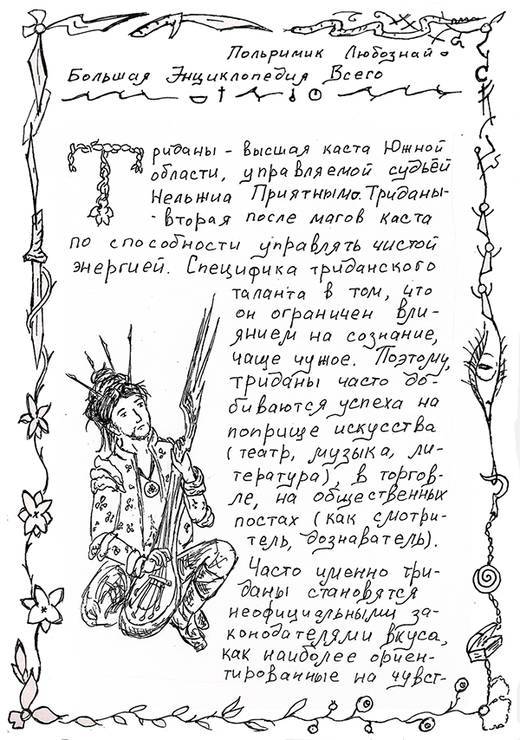 Польримик Любознай
Большая Энциклопедия Всего
Триданы - высшая каста Южной
области, управляемой судьёй
Нельжиа Приятнымо. Триданы -
- вторая после магов каста
по способности управлять чистой
энергией. Специфика триданского
таланта в том, что
он ограничен вли-
янием на сознание,
чаще чужое. Поэтому,
триданы часто до-
биваются успеха на
поприще искусства
(театр, музыка, ли-
тература), в торгов-
ле, на общественных
постах (как смотри-
тель, дознаватель).
Часто именно три-
даны становятся
неофициальными за-
конодателями вкуса,
как наиболее ориен-
тированные на чувст-